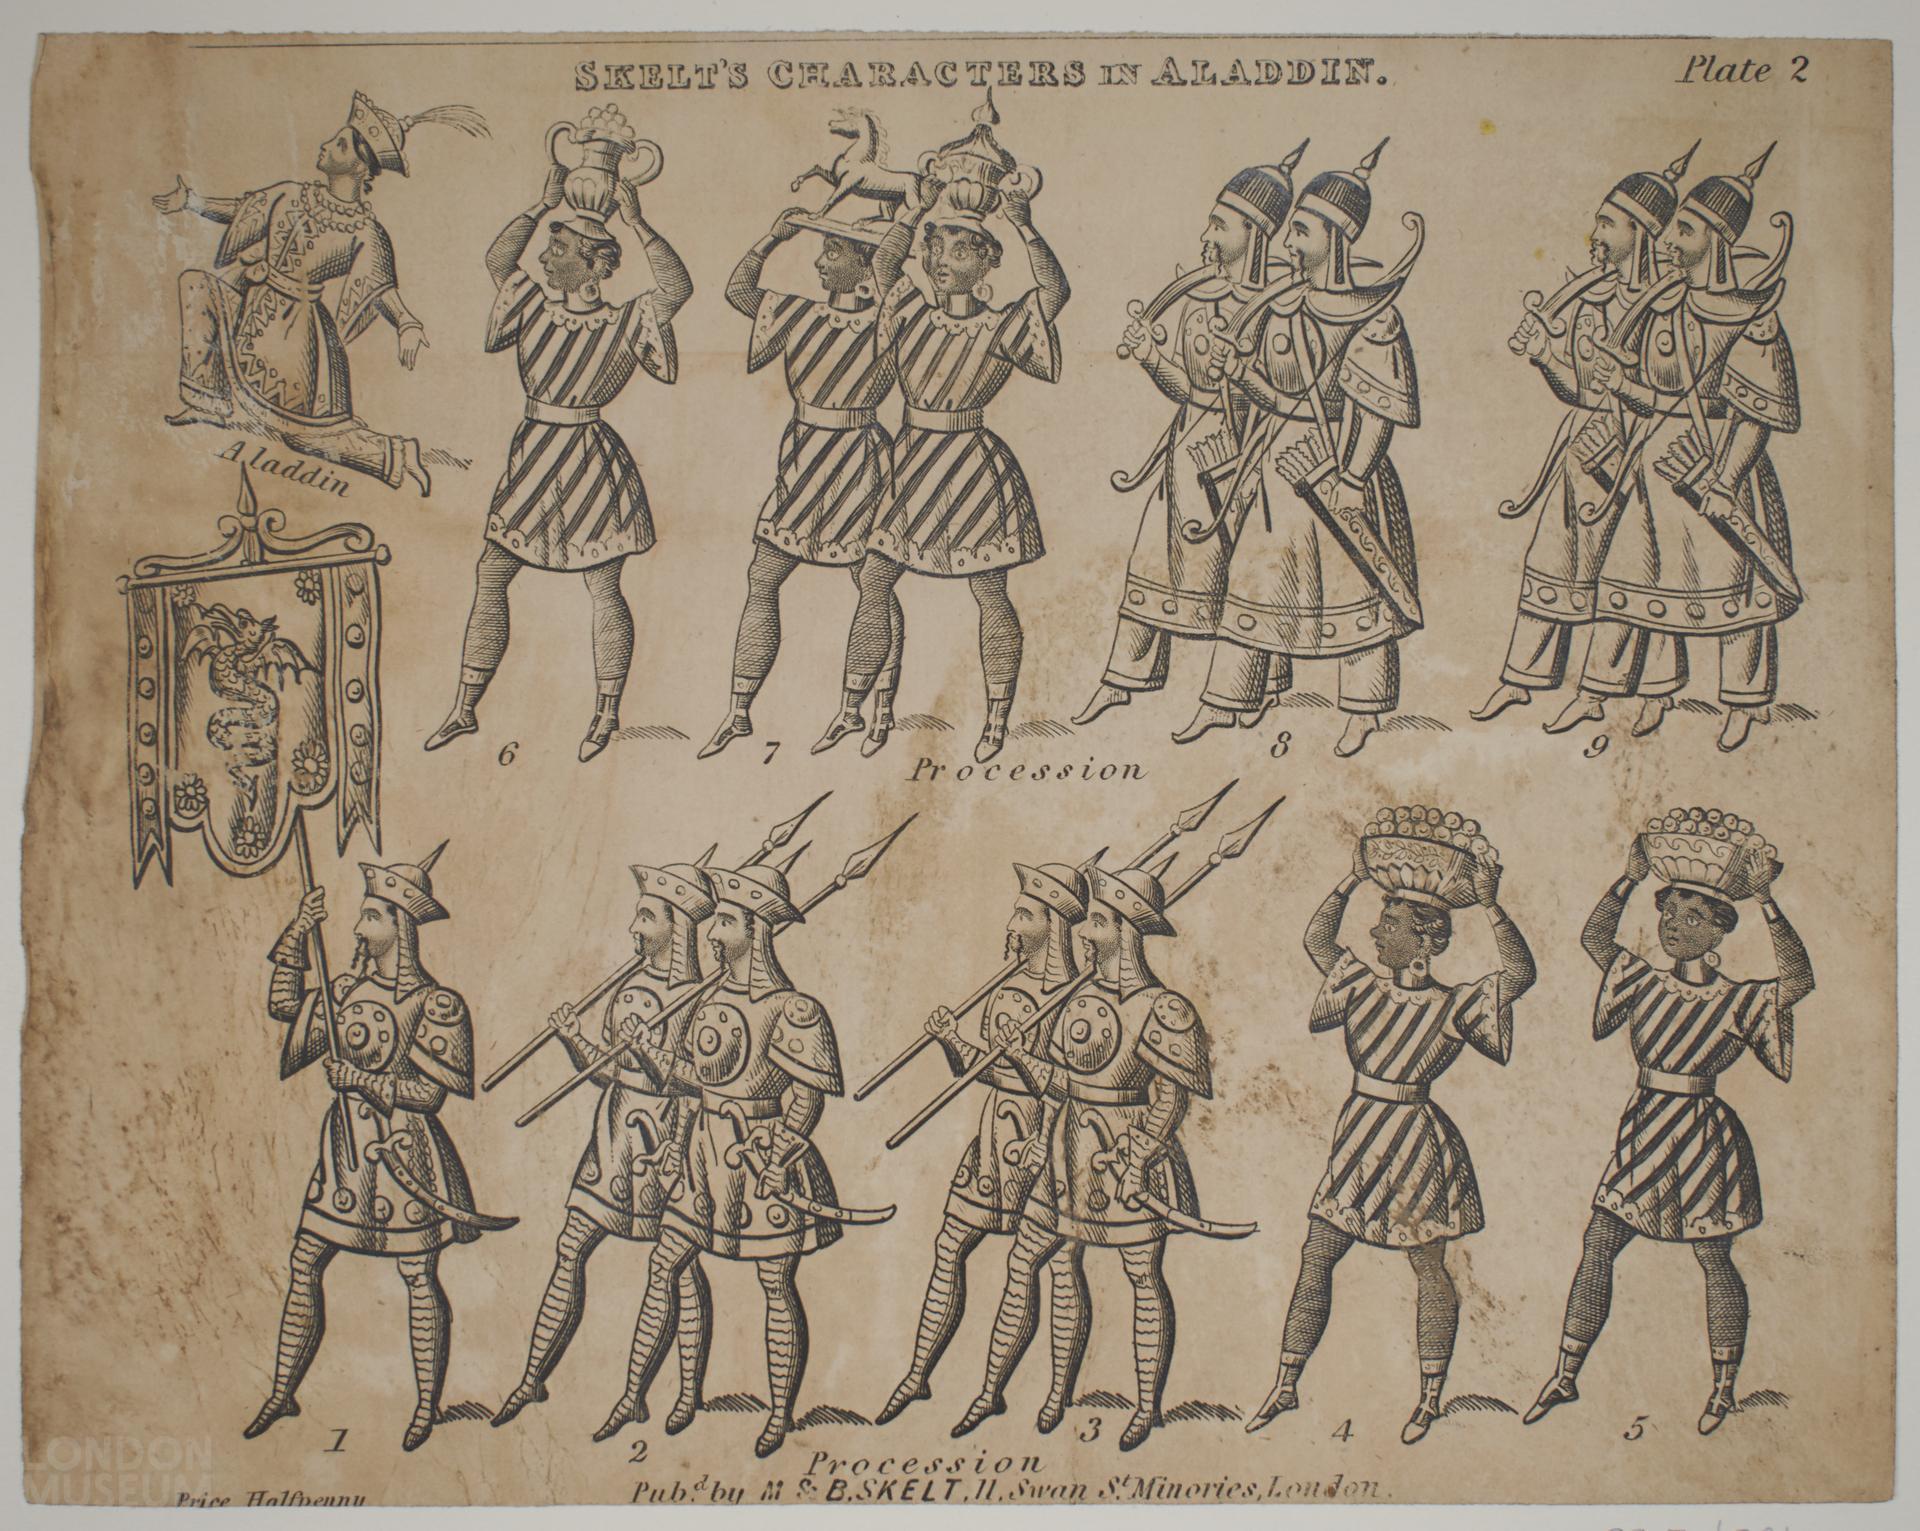 SKELT'S CHARACTERS IN ALADDIN.
Plate 2
Aladdin
6
7
8
9
Procession
1
2
3
4
5
Procession
Pubd. by M & B. SKELT, 11, Swan St Minories, London.
Price Halfpenny
LONDON
MUSEUM